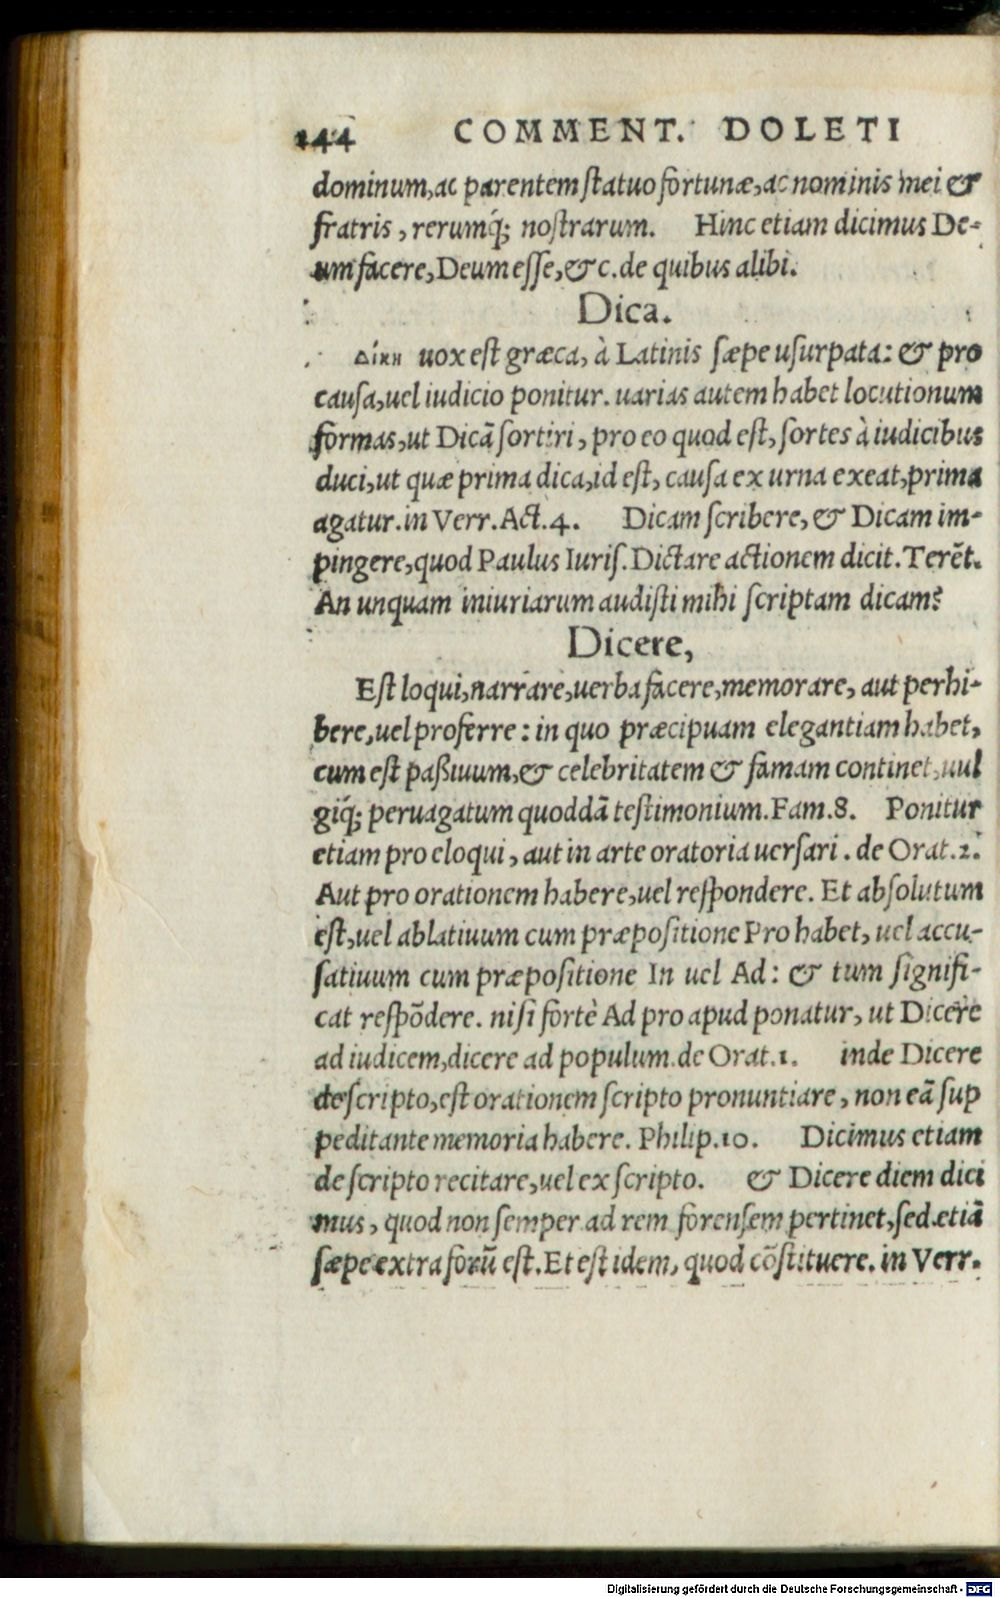 144 COMMENT. DOLETI
dominum, ac parentem ſtatuo fortunæ, ac nominis mei &
fratris, rerumq́; noſtrarum. Hinc etiam dicimus De-
um facere, Deum eſſe, &c. de quibus alibi.
Dica.
Δίκη uox eſt græca, à Latinis ſæpe uſurpata: & pro
cauſa, uel iudicio ponitur. uarias autem habet locutionum
formas, ut Dicā ſortiri, pro eo quod eſt, ſortes à iudicibus
duci, ut quæ prima dica, id eſt, cauſa ex urna exeat, prima
agatur. in Verr. Act. 4. Dicam ſcribere, & Dicam im-
pingere, quod Paulus Iuriſ. Dictare actionem dicit. Terēt.
An unquam iniuriarum audiſti mihi ſcriptam dicam?
Dicere,
Eſt loqui, narrare, uerba facere, memorare, aut perhi-
bere, uel proferre: in quo præcipuam elegantiam habet,
cum eſt paßiuum, & celebritatem & famam continet, uul
giq́; peruagatum quoddā teſtimonium. Fam. 8. Ponitur
etiam pro eloqui, aut in arte oratoria uerſari. de Orat. 2.
Aut pro orationem habere, uel reſpondere. Et abſolutum
eſt, uel ablatiuum cum præpoſitione Pro habet, uel accu-
ſatiuum cum præpoſitione In uel Ad: & tum ſignifi-
cat reſpōdere. niſi fortè Ad pro apud ponatur, ut Dicere
ad iudicem, dicere ad populum. de Orat. 1. inde Dicere
de ſcripto, eſt orationem ſcripto pronuntiare, non eā ſup
peditante memoria habere. Philip. 10. Dicimus etiam
de ſcripto recitare, uel ex ſcripto. & Dicere diem dici
mus, quod non ſemper ad rem forenſem pertinet, ſed etiā
ſæpe extra forū eſt. Et eſt idem, quod cōſtituere. in Verr.
Digitalisierung gefördert durch die Deutsche Forschungsgemeinschaft - DFG